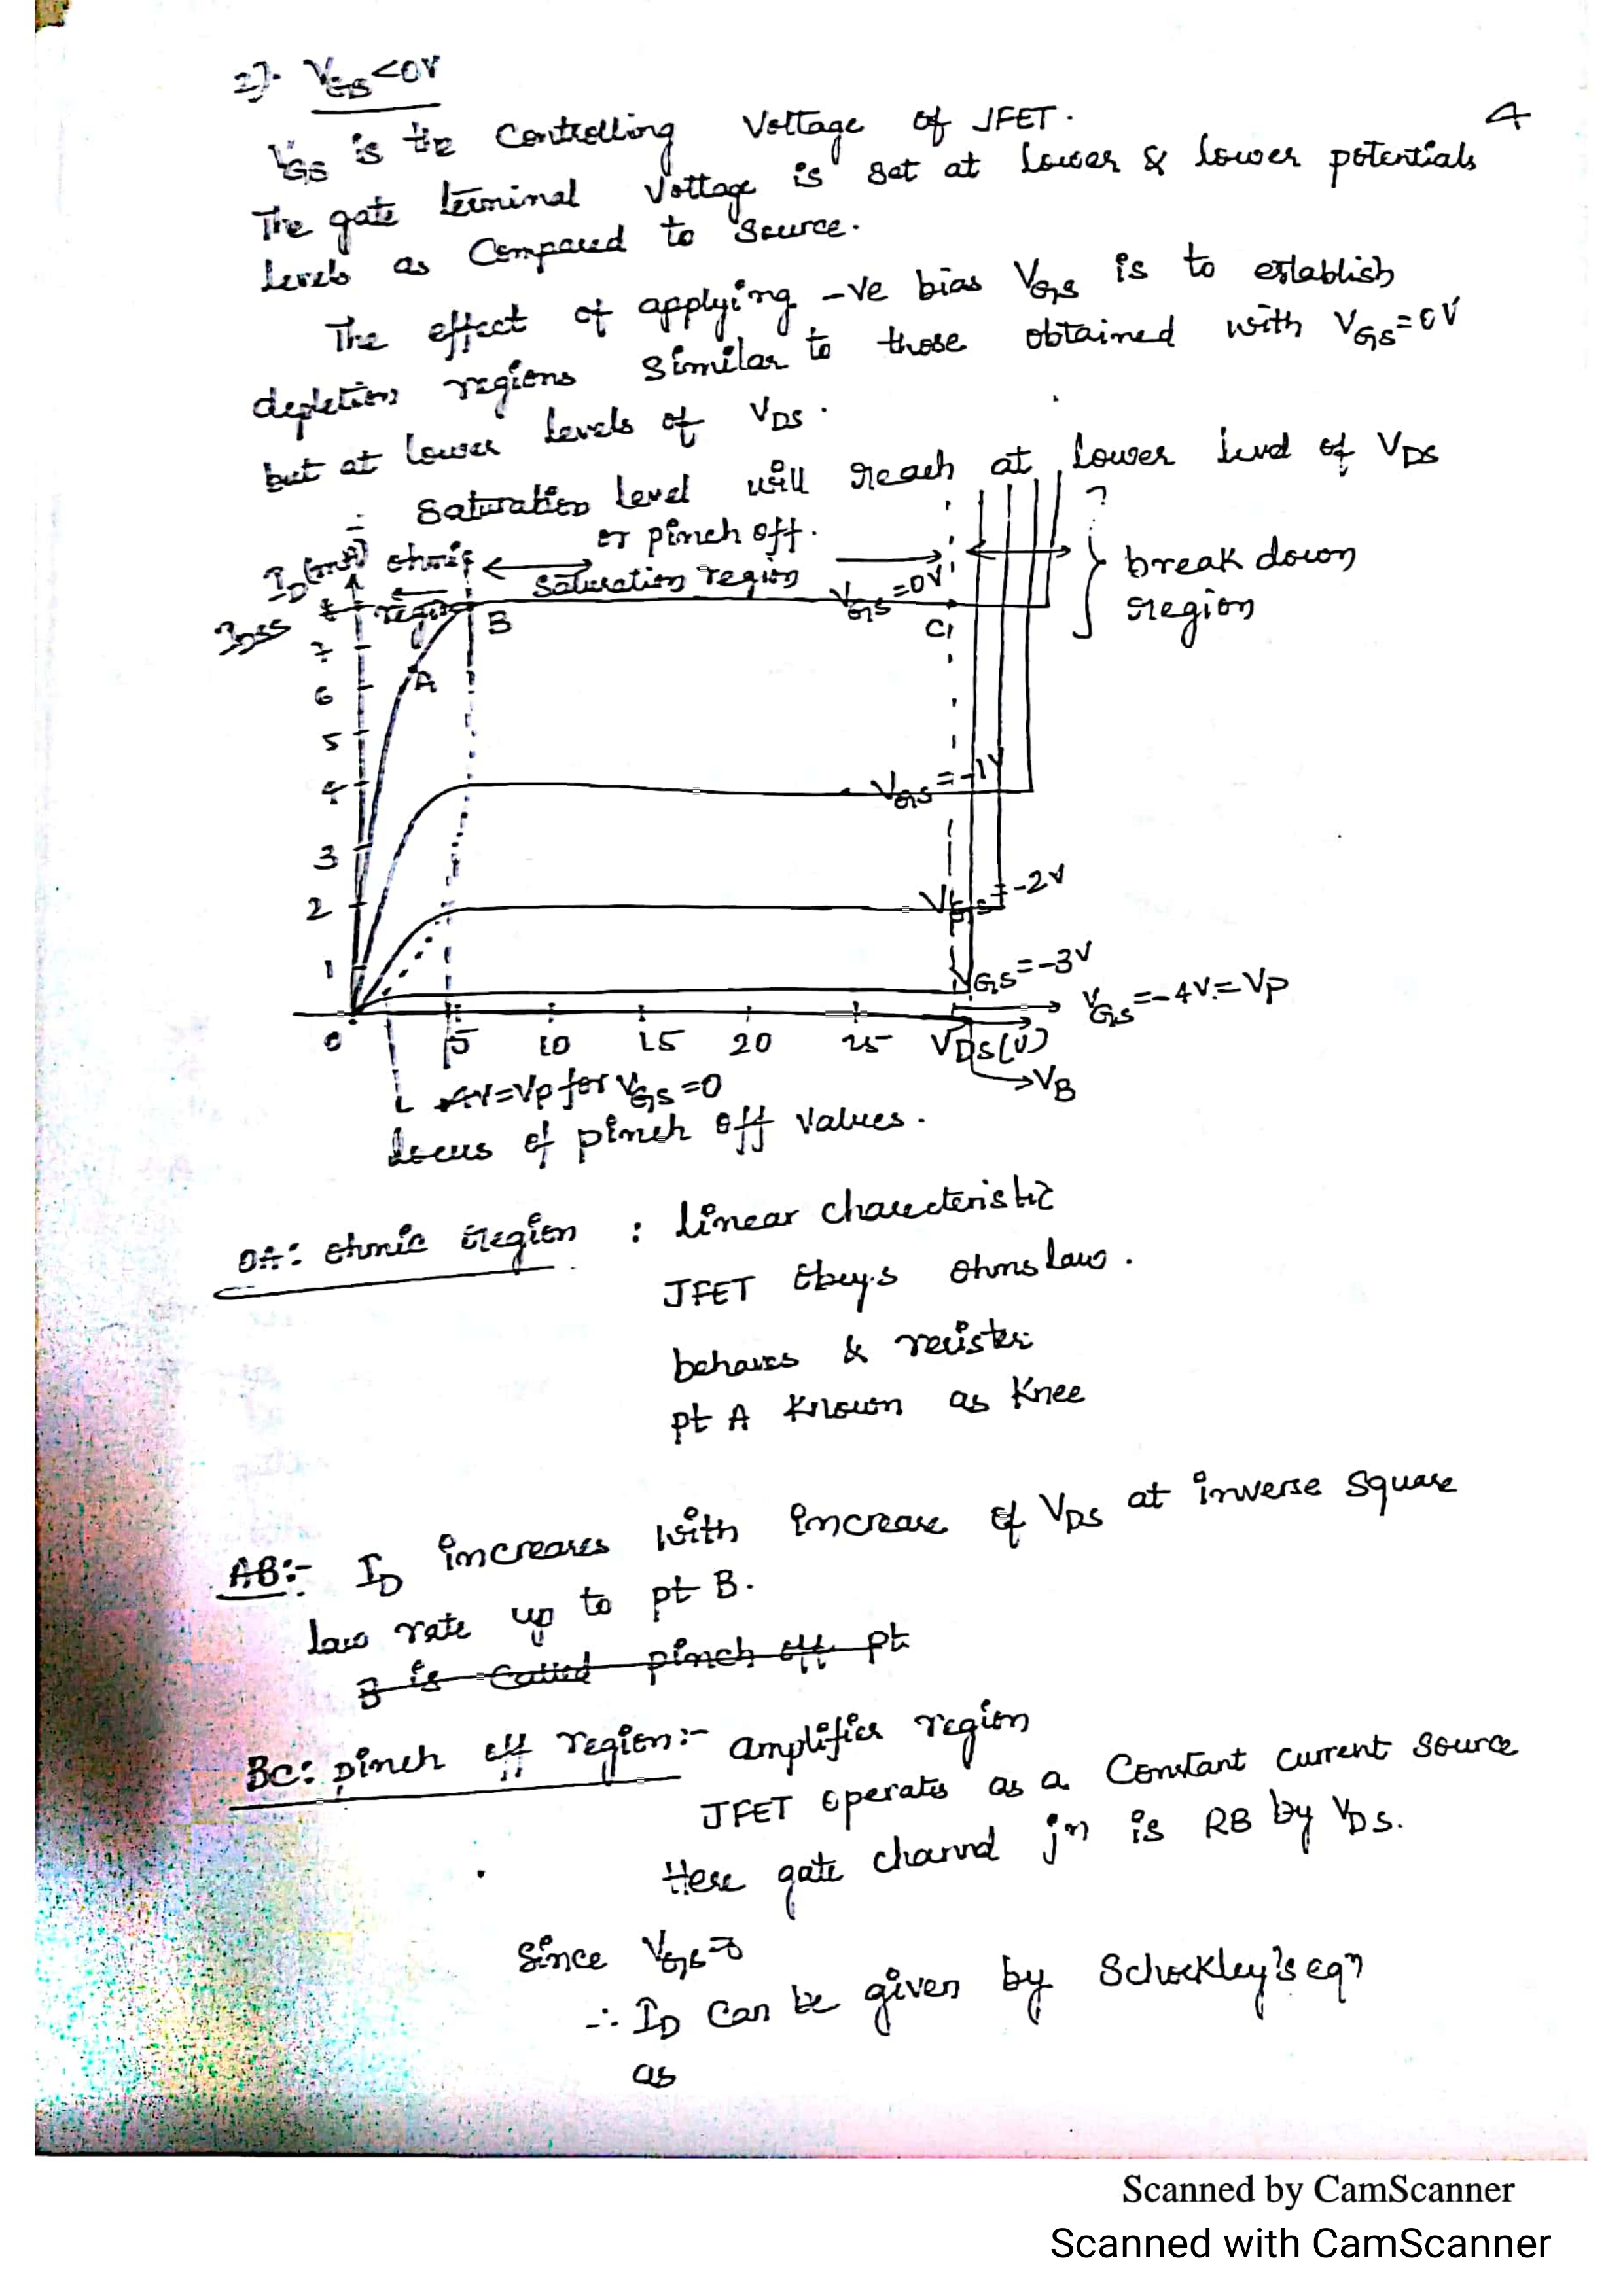 2). VGS<0V
4
VGS is the Controlling Voltage of JFET.
The gate terminal Voltage is set at Lower & lower potentials
levels as Compared to Source.
The effect of applying -ve bias VGS is to establish
depletion regions similar to those obtained with VGS=0V
but at lower levels of VDS.
Saturation level will reach at lower level of VDS
or pinch off.
ID(mA) ohmic
region
Saturation region
VGS=0V
break down
region
IDSS
B
C
7
A
6
5
VGS=-1V
4
3
VGS=-2V
2
1
VGS=-3V
VGS=-4V=VP
0 5 10 15 20 25 VDS(V)
VB
4V=VP for VGS=0
locus of pinch off values.
OA: ohmic region : linear charecteristic
JFET Obeys ohms law.
behaves & resister
pt A known as Knee
AB:- ID increases with increase of VDS at inverse square
law rate up to pt B.
B is Called pinch off pt
BC: pinch off region:- amplifier region
JFET operates as a Constant current source
Here gate channel jn is RB by VDS.
Since VGS=0
∴ ID Can be given by Schockley's eqn
as
Scanned by CamScanner
Scanned with CamScanner